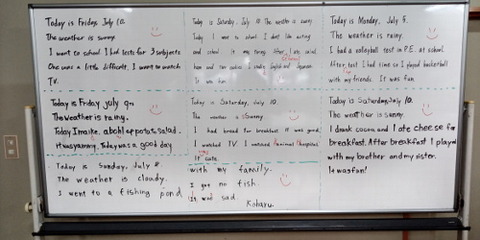 Today is Friday, July 10.
The weather is sunny.
I went to school. I had tests for 3 subjects.
One was a little difficult. I want to watch
TV.
Today is Saturday, July 10. The weather is sunny.
Today I went to school. I don't like
and school. It was tiring. After,
home and I English and Spanish.
It was fun.
Today is Monday, July 5.
The weather is rainy.
I had a volleyball test in P.E. at school.
After test, I had time so I played basketball
with my friends. It was fun.
Today is Friday july 9th.
The weather is rainy.
Today I make a bowl of potato salad.
It was yammy. Today was a good day
Today is Saturday, July 10.
The weather is sunny
I had bread for breakfast. It was good.
I watched TV. I watched Animal
It cute.
Today is Saturday, July 10.
The weather is sunny.
I drank cocoa and I ate cheese for
breakfast. After breakfast I played
with my brother and my sister.
It was fun!
Today is Sunday, July
The weather is cloudy.
I went to a fishing pond
with my family.
I got no fish.
I was sad.
Koharu